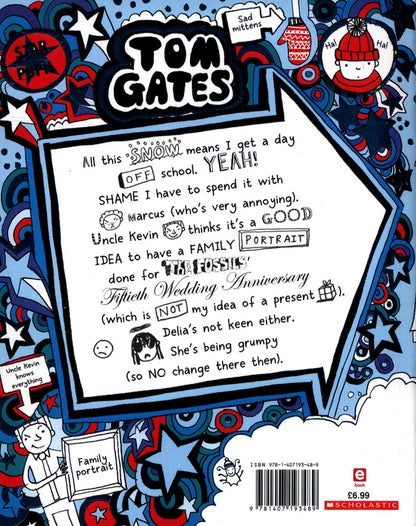 STAR PUPIL
TOM
GATES
Sad
mittens
Ha!
Ha!
All this SNOW means I get a day
OFF school. YEAH!
SHAME I have to spend it with
Marcus (who's very annoying).
Uncle Kevin thinks it's a GOOD
IDEA to have a FAMILY PORTRAIT
done for THE FOSSILS'
Fiftieth Wedding Anniversary
(which is NOT my idea of a present).
Delia's not keen either.
She's being grumpy
(so NO change there then).
Uncle Kevin
knows
everything
Family
portrait
ISBN 978-1-407193-48-9
9 781407 193489
e
book
£6.99
SCHOLASTIC